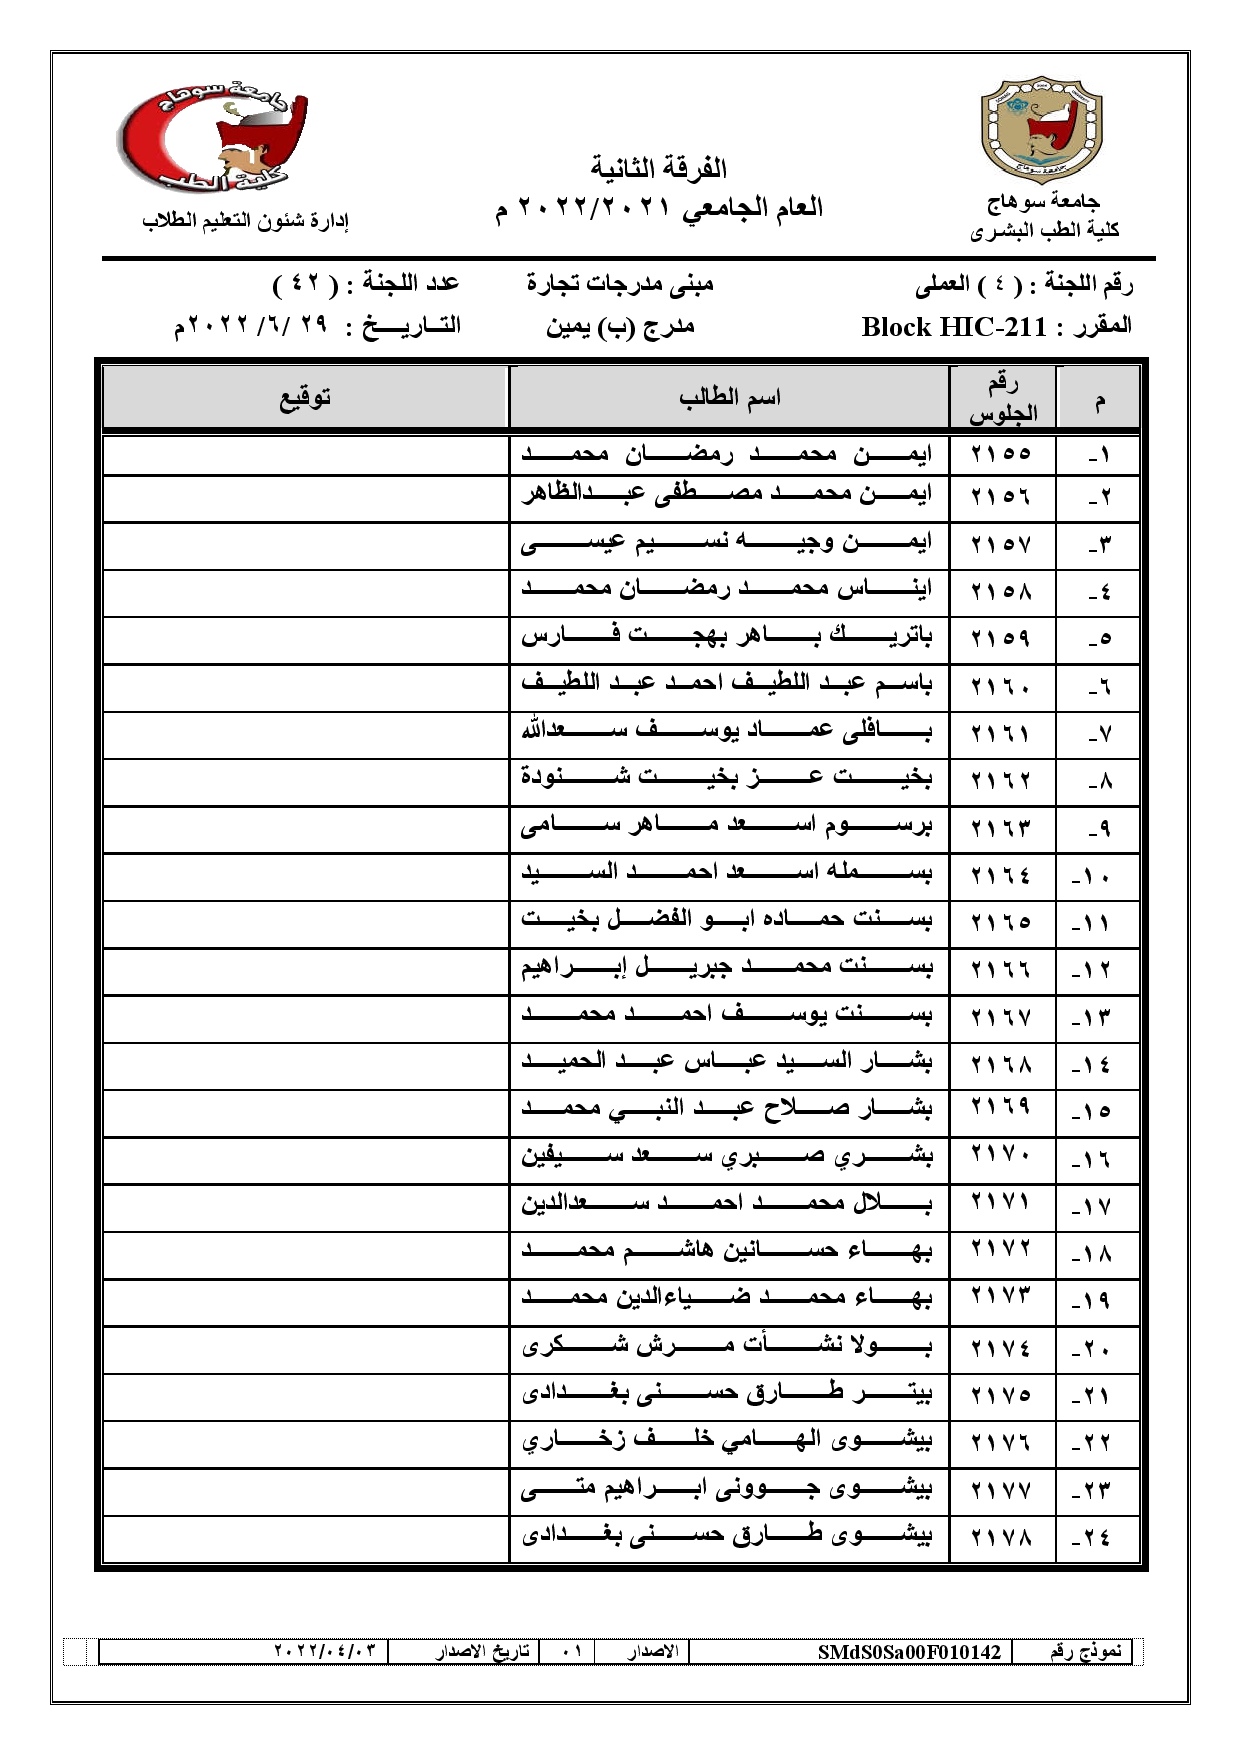 جامعة سوهاج
كلية الطب
جامعة سوهاج
الفرقة الثانية
العام الجامعي ٢٠٢٢/٢٠٢١ م
جامعة سوهاج
كلية الطب البشرى
إدارة شئون التعليم الطلاب
رقم اللجنة : ( ٤ ) العملى مبنى مدرجات تجارة عدد اللجنة : ( ٤٢ )
المقرر : Block HIC-211 مدرج (ب) يمين التـاريــخ : ٢٩ /٦/ ٢٠٢٢م
م رقم الجلوس اسم الطالب توقيع
١- ٢١٥٥ ايمن محمد رمضان محمد
٢- ٢١٥٦ ايمن محمد مصطفى عبدالظاهر
٣- ٢١٥٧ ايمن وجيه نسيم عيسى
٤- ٢١٥٨ ايناس محمد رمضان محمد
٥- ٢١٥٩ باتريك باهر بهجت فارس
٦- ٢١٦٠ باسم عبد اللطيف احمد عبد اللطيف
٧- ٢١٦١ بافلى عماد يوسف سعدالله
٨- ٢١٦٢ بخيت عز بخيت شنودة
٩- ٢١٦٣ برسوم اسعد ماهر سامى
١٠- ٢١٦٤ بسمله اسعد احمد السيد
١١- ٢١٦٥ بسنت حماده ابو الفضل بخيت
١٢- ٢١٦٦ بسنت محمد جبريل إبراهيم
١٣- ٢١٦٧ بسنت يوسف احمد محمد
١٤- ٢١٦٨ بشار السيد عباس عبد الحميد
١٥- ٢١٦٩ بشار صلاح عبد النبي محمد
١٦- ٢١٧٠ بشري صبري سعد سيفين
١٧- ٢١٧١ بلال محمد احمد سعدالدين
١٨- ٢١٧٢ بهاء حسانين هاشم محمد
١٩- ٢١٧٣ بهاء محمد ضياءالدين محمد
٢٠- ٢١٧٤ بولا نشأت مرش شكرى
٢١- ٢١٧٥ بيتر طارق حسنى بغدادى
٢٢- ٢١٧٦ بيشوى الهامي خلف زخاري
٢٣- ٢١٧٧ بيشوى جوونى ابراهيم متى
٢٤- ٢١٧٨ بيشوى طارق حسنى بغدادى
نموذج رقم SMdS0Sa00F010142 الاصدار ٠١ تاريخ الاصدار ٢٠٢٢/٠٤/٠٣